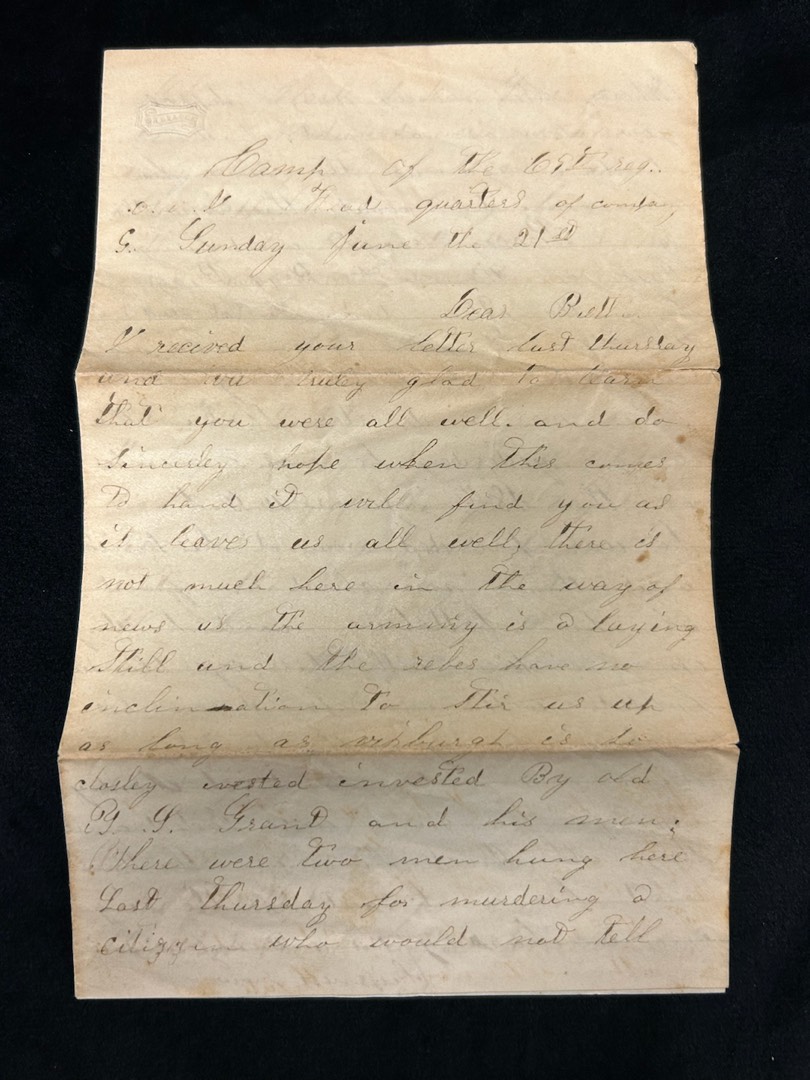 Camp of the 69th reg..
o. v. I Head quarters of compa,
G. Sunday June the 21st
Dear
I recived your letter last thursday
and truley glad to learn
that you were all well. and do
sincerley hope when this comes
to hand it will find you as
it leaves us all well, there is
not much here in the way of
news as the armmy is a laying
still and the rebes have no
inclination to stir us up
as long as is so
closley invested By old
Grant and his men;
there were two men hung here
Last thursday for murdering a
who would not tell